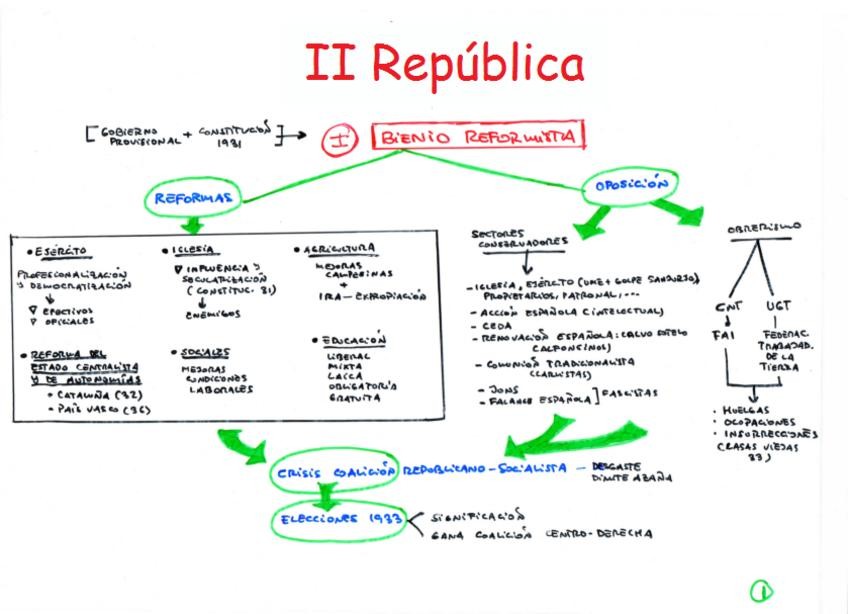 II República
[GOBIERNO PROVISIONAL + CONSTITUCIÓN 1931] → I BIENIO REFORMISTA
REFORMAS
OPOSICIÓN
• EJÉRCITO
PROFESIONALIZACIÓN
Y DEMOCRATIZACIÓN
∇ EFECTIVOS
∇ OFICIALES
• IGLESIA
∇ INFLUENCIA Y
SECULARIZACIÓN
(CONSTITUC. 31)
ENEMIGOS
• AGRICULTURA
MEJORAS
CAMPESINAS
+
IRA - EXPROPIACIÓN
• REFORMA DEL
ESTADO CENTRALISTA
Y DE AUTONOMÍAS
• CATALUÑA (32)
• PAÍS VASCO (36)
• SOCIALES
MEJORAS
CONDICIONES
LABORALES
• EDUCACIÓN
LIBERAL
MIXTA
LAICA
OBLIGATORIA
GRATUITA
SECTORES
CONSERVADORES
- IGLESIA, EJÉRCITO (UME + GOLPE SANJURJO)
PROPIETARIOS, PATRONAL, ...
- ACCIÓN ESPAÑOLA (INTELECTUAL)
- CEDA
- RENOVACIÓN ESPAÑOLA: CALVO SOTELO
(ALFONSINOS)
- COMUNIÓN TRADICIONALISTA
(CARLISTAS)
- JONS
- FALANGE ESPAÑOLA ] FASCISTAS
OBRERISMO
CNT
FAI
UGT
FEDERAC.
TRABAJAD.
DE LA
TIERRA
• HUELGAS
• OCUPACIONES
• INSURRECCIONES
(CASAS VIEJAS
33)
CRISIS COALICIÓN REPUBLICANO-SOCIALISTA - DESGASTE
DIMITE AZAÑA
ELECCIONES 1933
SIGNIFICACIÓN
GANA COALICIÓN CENTRO-DERECHA
1